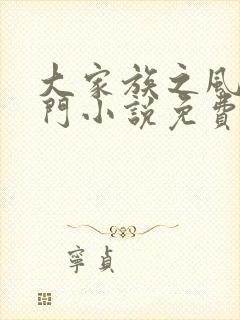 大家族之風
門小說免費
寧貞